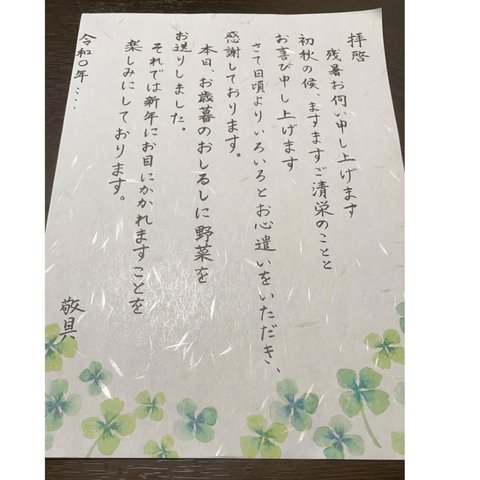 拝啓
残暑お伺い申し上げます
初秋の候、ますますご清栄のことと
お喜び申し上げます
さて日頃よりいろいろとお心遣いをいただき、
感謝しております。
本日、お歳暮のおしるしに野菜を
お送りしました。
それでは新年にお目にかかれますことを
楽しみにしております。
敬具
令和〇年....